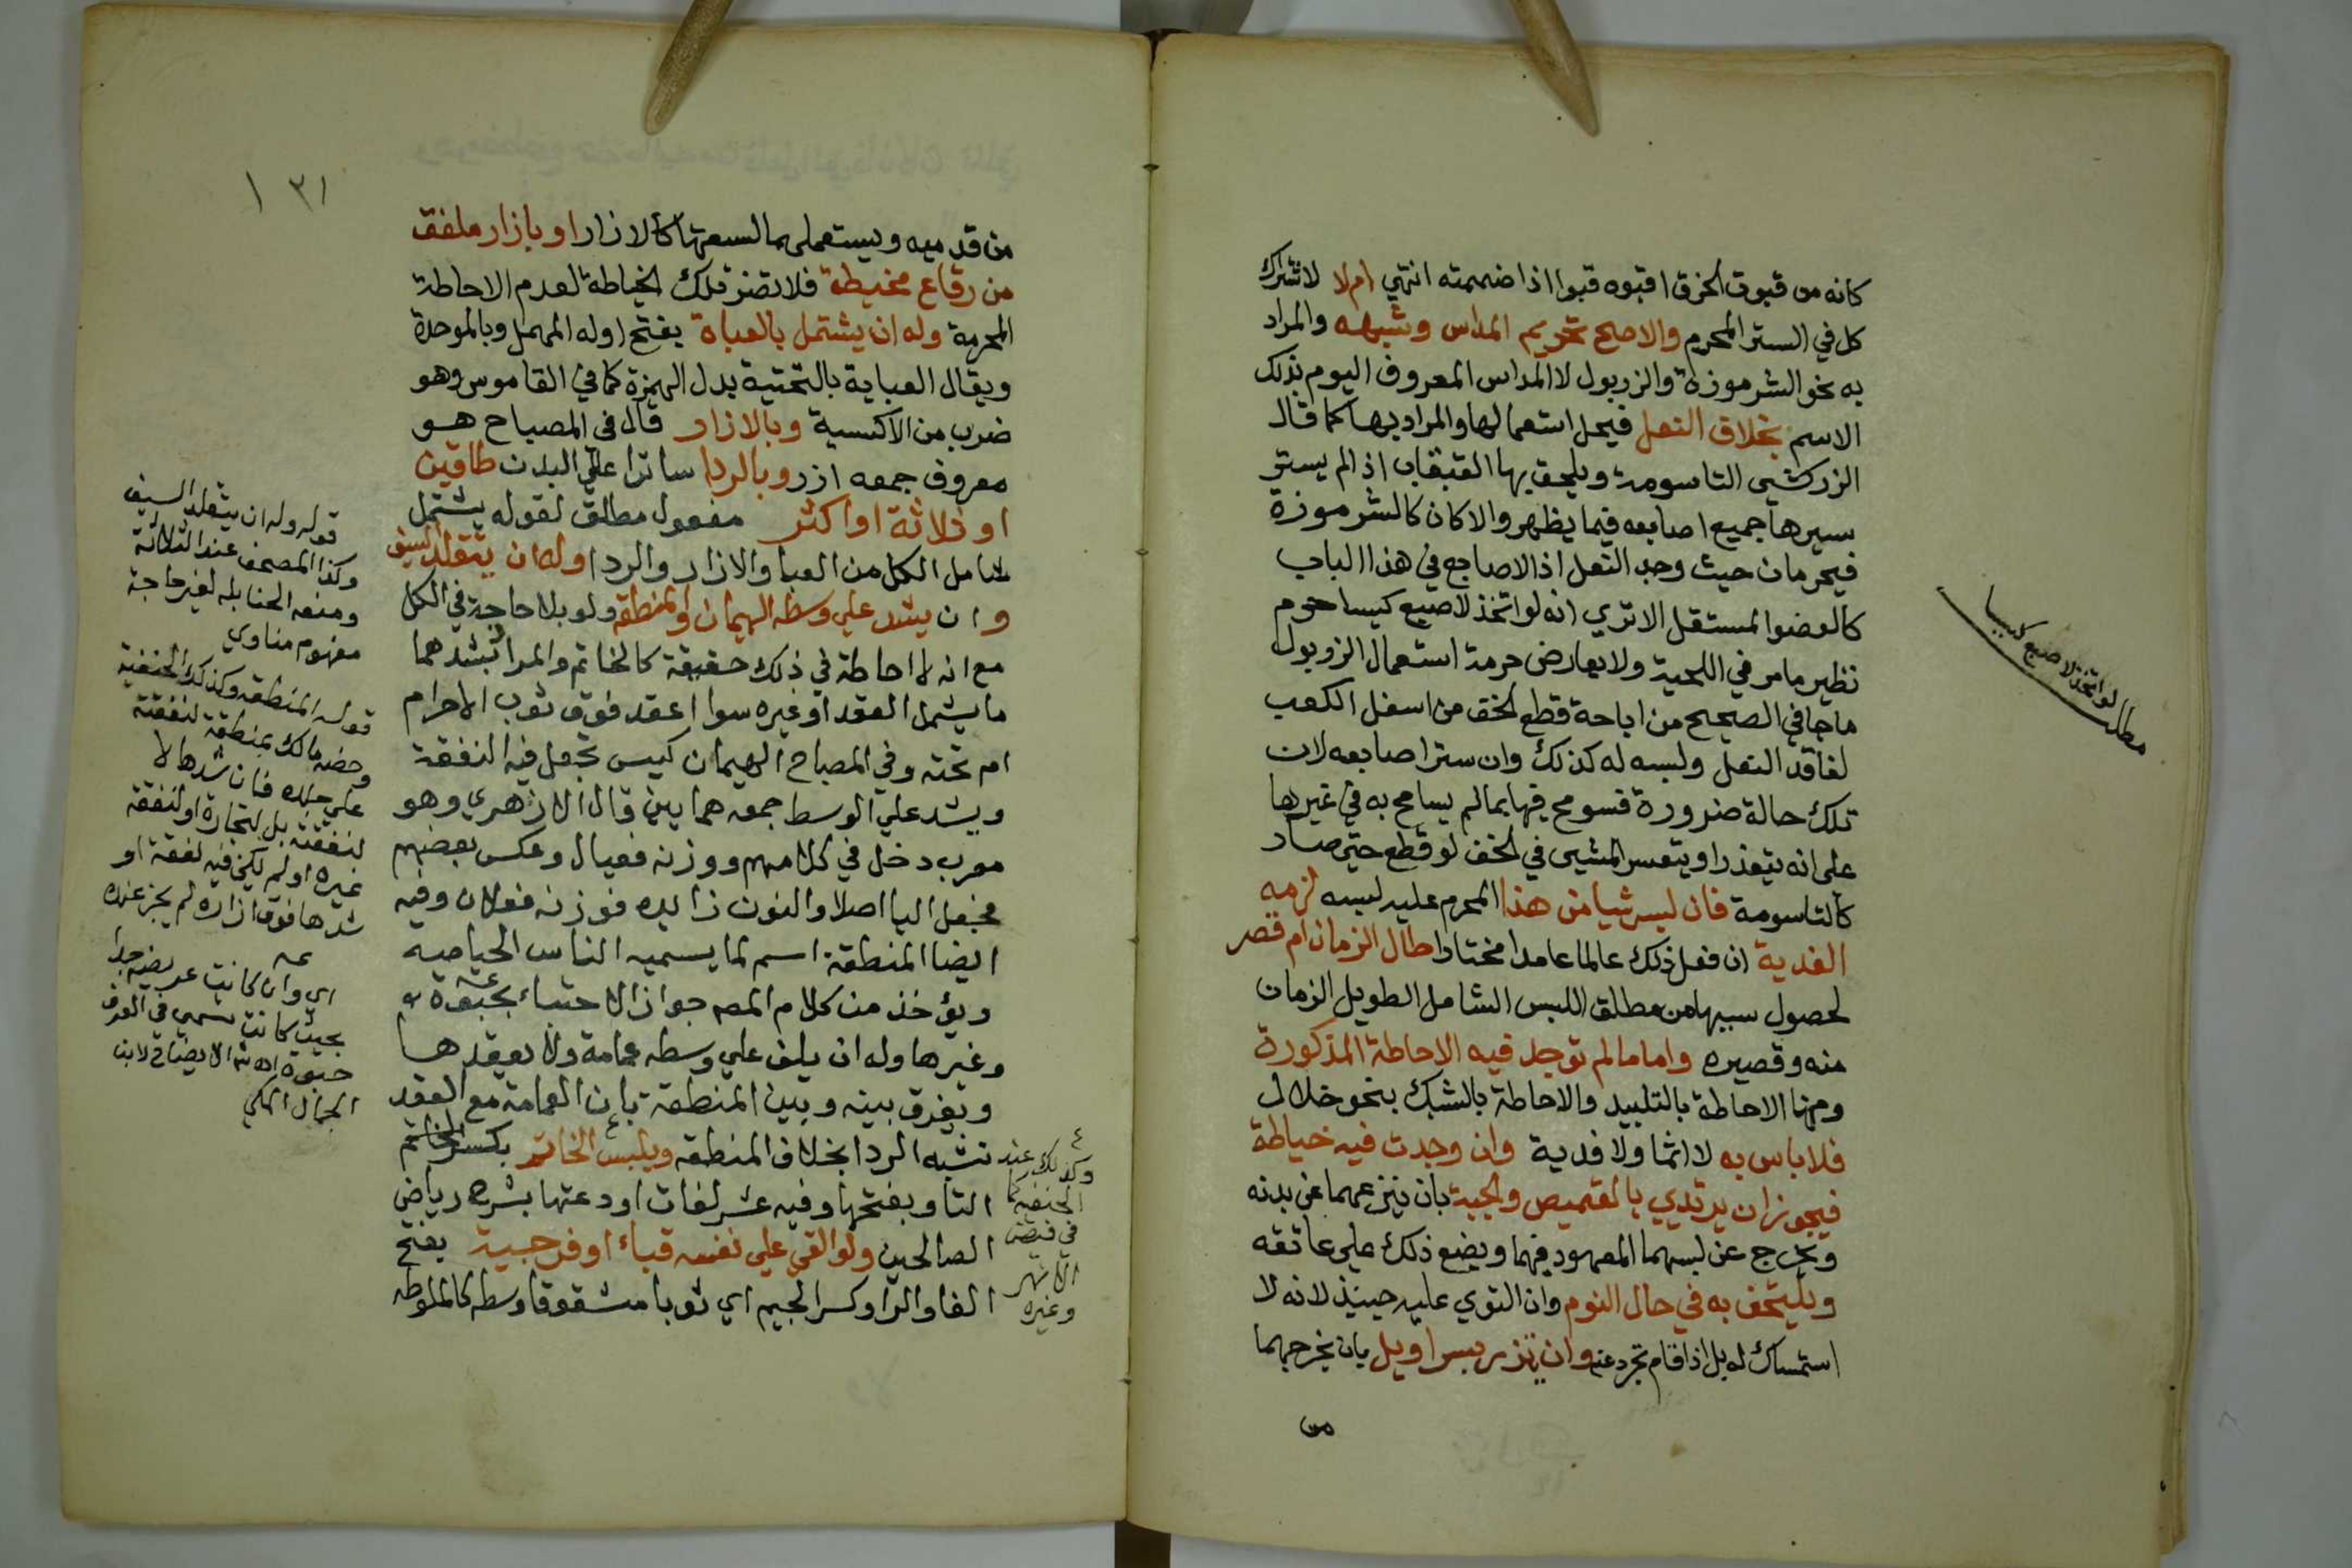 كانه من قبوت الحرق اقبوه قبوا اذا ضممته انتهي ام لا لاشتراك
كل في الستر المحرم والاصح تحريم المداس وشبهه والمراد
به نحو الشرموزة والزربول لا المداس المعروف اليوم بذلك
الاسم بخلاف النعل فيحل استعمالها والمراد بها كما قال
الزركشي التاسومة ويلحق بها القبقاب اذ الم يستر
سيرها جميع اصابعه فيما يظهر والا كان كالشرموزة
فيحرمان حيث وجد النعل اذ الاصابع في هذا الباب
كالعضو المستقل الا تري انه لو اتخذ لاصبع كيسا حرم
نظير ما مر في اللحية ولا يعارض حرمة استعمال الزربول
ما جا في الصحيح من اباحة قطع الخف من اسفل الكعب
لفاقد النعل ولبسه له كذلك وان ستر اصابعه لان
تلك حالة ضرورة فسومح فيها بما لم يسامح به في غيرها
على انه يتعذر او يتعسر المشي في الخف لو قطع حتى صار
كالتاسومة فان لبس شيا من هذا المحرم عليه لبسه لزمه
الفدية ان فعل ذلك عالما عامدا مختارا طال الزمان ام قصر
لحصول سببها من مطلق اللبس الشامل الطويل الزمان
منه وقصيره واما ما لم توجد فيه الاحاطة المذكورة
ومنها الاحاطة بالتلبيد والاحاطة بالشبك بنحو خلال
فلا باس به لا اثما ولا فدية وان وجدت فيه خياطة
فيجوز ان يرتدي بالقميص والجبة بان ينزعهما عن بدنه
ويخرج عن لبسهما المعهود فيهما ويضع ذلك على عاتقه
ويلتحف به في حال النوم وان التوي عليه حينيذ لانه لا
استمساك له بل اذا قام تجرد عنه وان يتزر بسراويل بان يخرجهما
من
مطلب لو اتخذ لاصبع كيسا
١٣١
من قدميه ويستعملهما لسعتها كالازار او بازار ملفق
من رقاع مخيطة فلا تضر تلك الخياطة لعدم الاحاطة
المحرمة وله ان يشتمل بالعباة بفتح اوله المهمل وبالموحدة
ويقال العباية بالتحتية بدل الهمزة كما في القاموس وهو
ضرب من الاكسية وبالازار قال في المصباح هو
معروف جمعه ازر وبالردا ساترا علي البدن طاقين
او ثلاثة او اكثر مفعول مطلق لقوله يشتمل
شامل الكل من العبا والازار والردا وله ان يتقلد السيف
وان يشد علي وسطه الهيمان والمنطقة ولو بلا حاجة في الكل
مع انه لا احاطة في ذلك حقيقة كالخاتم والمراد بشدهما
ما يشمل العقد او غيره سوا اعقد فوق ثوب الاحرام
ام تحته وفي المصباح الهيمان كيس تجعل فيه النفقة
ويشد علي الوسط جمعه همايين قال الازهري وهو
معرب دخل في كلامهم ووزنه فعيال وعكس بعضهم
فجعل اليا اصلا والنون زايده فوزنه فعلان وفيه
ايضا المنطقة اسم لما يسميه الناس الحياصة
ويؤخذ من كلام المصه جواز الاحتباء بحبوة
وغيرها وله ان يلف علي وسطه عمامة ولا يعقدها
ويفرق بينه وبين المنطقة بان العمامة مع العقد
تشبه الردا بخلاف المنطقه ويلبس الخاتم بكسر
التا وبفتحها وفيه عشر لغات اودعتها بشرح رياض
الصالحين ولو القى علي نفسه قباء او فرجية بفتح
الفا والرا وكسر الجيم اي ثوبا مشقوقا وسطه كالملوطه
قوله وله ان يتقلد السيف
وكذا المصحف عند الثلاثة
ومنعه الحنابله لغير حاجة
مفهوم مناوي
قوله المنطقه وكذلك الحنفية
وخصه مالك بمنطقة لنفقته
علي جلده فان شدها لا
لنفقته بل لتجارة او لنفقة
غيره او لم يكن فيه نفقة او
شدها فوق ازاره لم يجز عنده
اي وان كانت عريضه جدا
بحيث كانت تسمي في العرف
حبوة
الجمال المكي
وكذلك عند
الحنفيه كما
في
وغيره